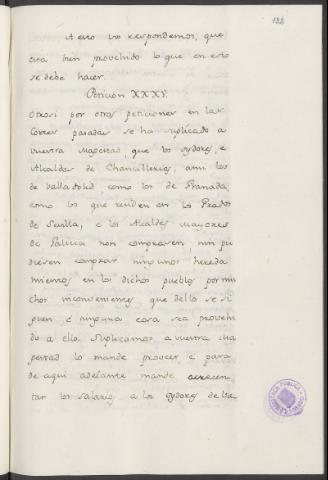 122
A esto vos respondemos, que
esta bien provehido lo que en esto
se debe hacer.
Peticion XXXV.
Otrosi por otras peticiones en las
Cortes pasadas se ha suplicado a
vuestra Magestad, que los oydores, e
Alcaldes de Chancillerias, ansi los
de Valladolid como los de Granada,
como los que residen en los Grados
de Sevilla, e los Alcaldes Mayores
de Galicia non comprasen, nin pu
diesen comprar ningunos hereda
mientos en los dichos pueblos por mu
chos inconvenientes, que dello se si
guen é ninguna cosa sea provehi
do a ello. Suplicamos a vuestra Ma
gestad lo mande proveer e para
de aqui adelante mande acrecen
tar los salarios a los oydores de las